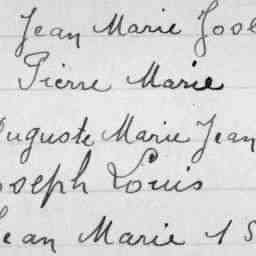 Jean Marie Jose
Pierre Marie
Auguste Marie Jean
Joseph Louis
Jean Marie 1 S